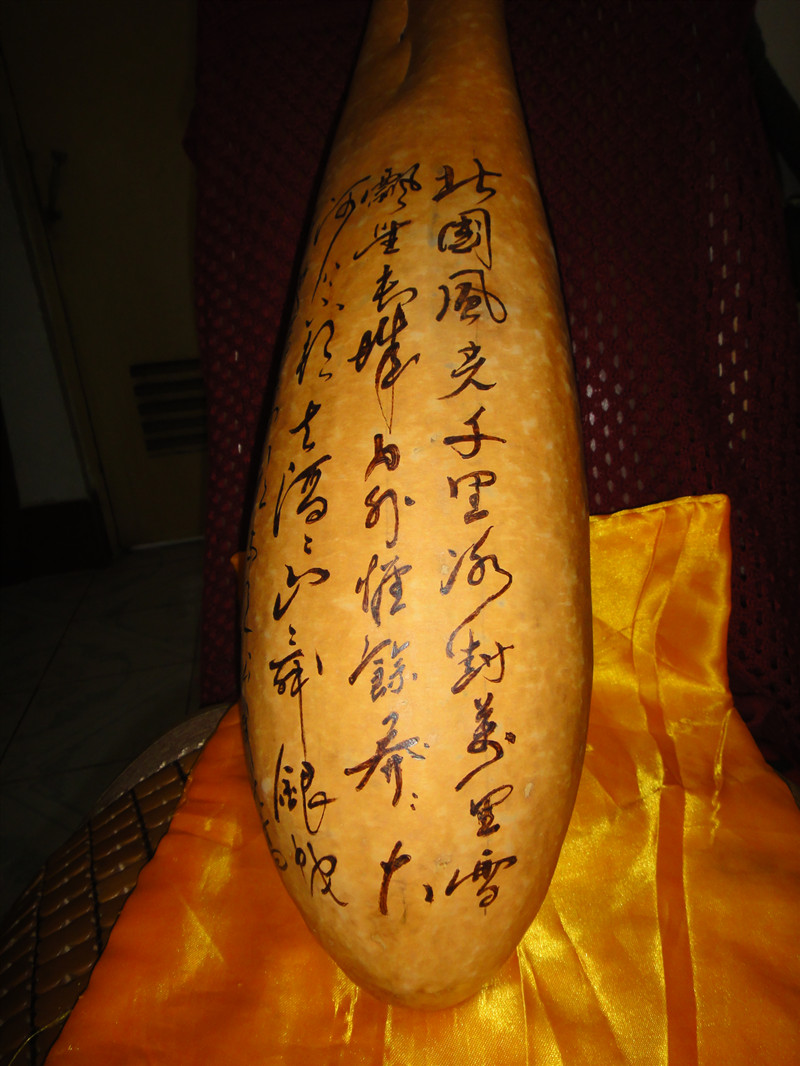 北國風光千里冰封萬里雪
飄望長城內外惟餘莽〻大
河上下頓失滔〻山舞銀蛇